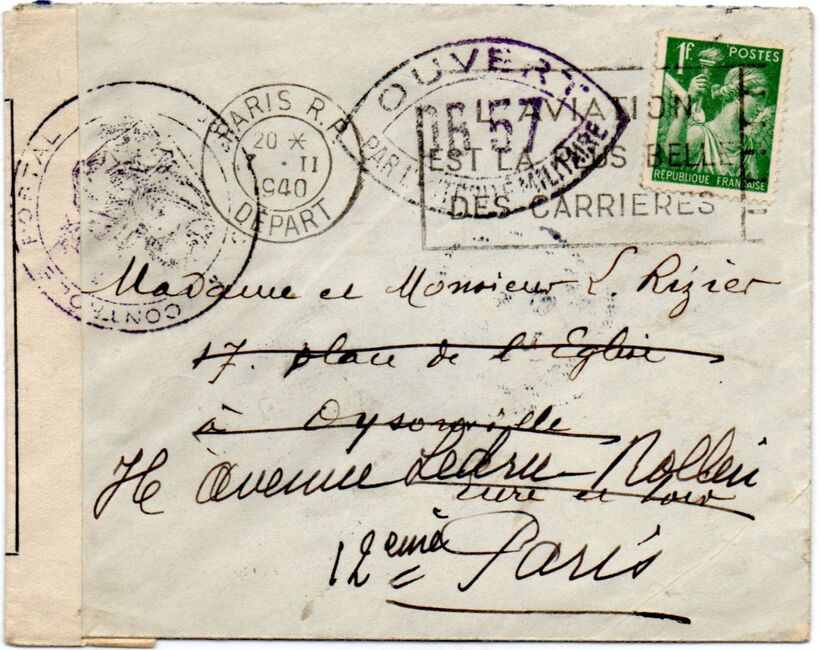 1f. POSTES
RÉPUBLIQUE FRANÇAISE
PARIS R.P.
20 *
7 · II
1940
DÉPART
OUVERT
DB 57
PAR L'AUTORITÉ MILITAIRE
L'AVIATION
EST LA PLUS BELLE
DES CARRIERES
CONTROLE POSTAL
Madame et Monsieur L. Rizier
17. place de l'Eglise
à Oysonville
Eure et Loir
Avenue Ledru-Rollin
12eme Paris